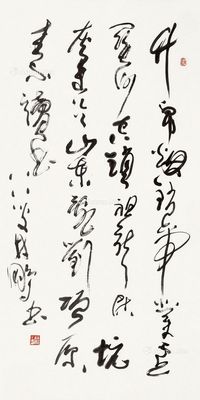 竹帛烟销帝业虚
关河空锁祖龙居坑
灰未冷山东乱刘项原
来不读书 林鹏书